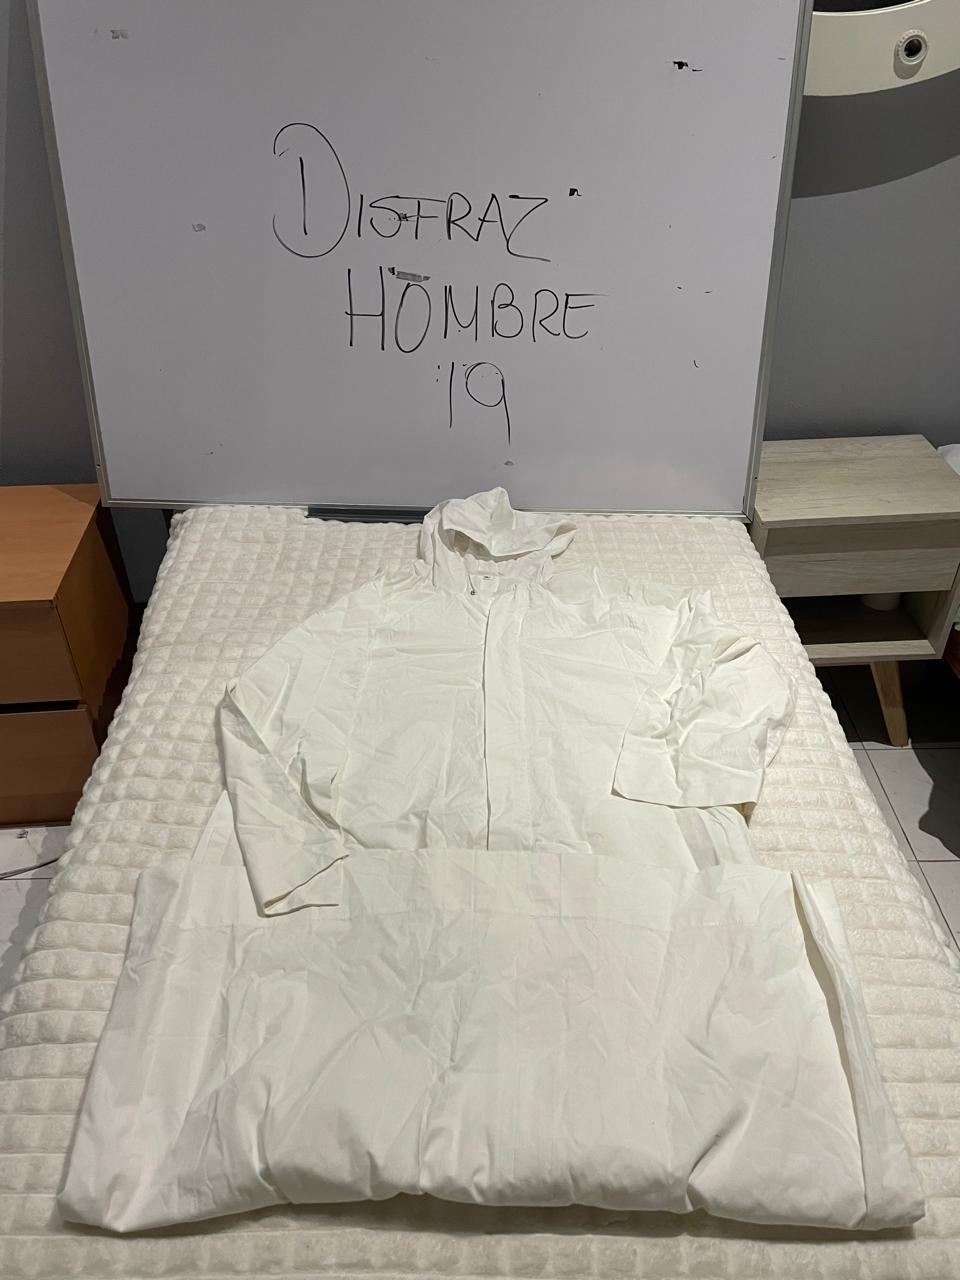 DISFRAZ
HOMBRE
19